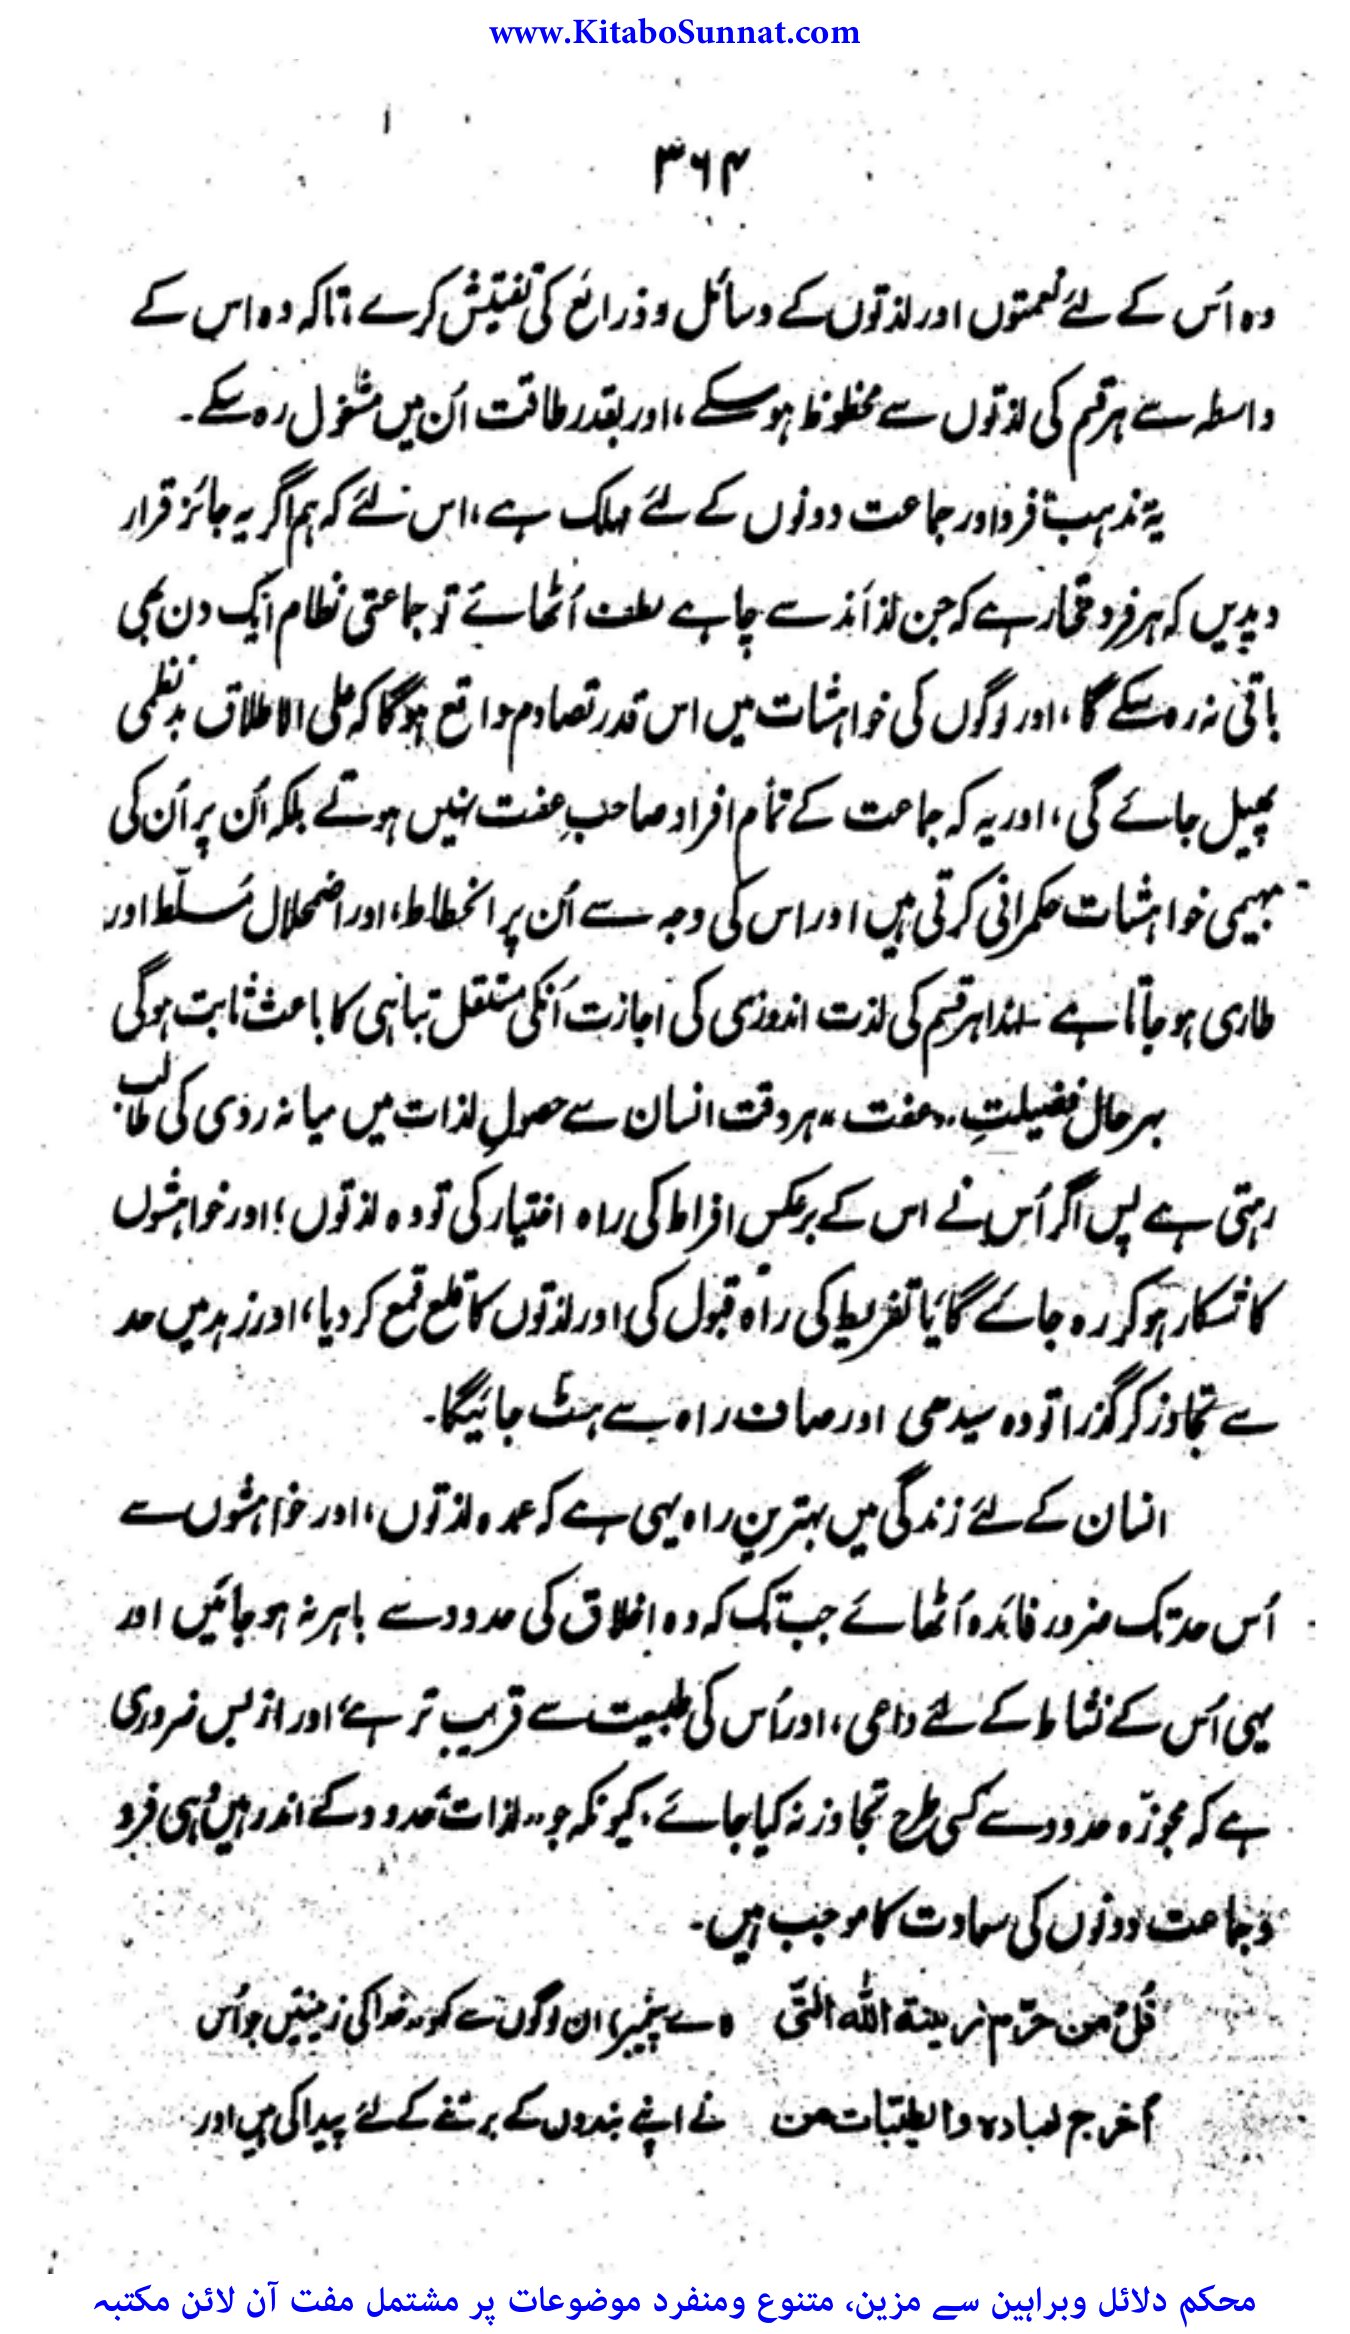 www.KitaboSunnat.com
۳۶۴
وہ اُس کے لئے نعمتوں اور لذتوں کے وسائل و ذرائع کی تفتیش کرے، تاکہ وہ اس کے
واسطہ سے ہر قسم کی لذتوں سے محظوظ ہو سکے، اور بقدر طاقت اُن میں مشغول رہ سکے۔
یہ مذہب فرد اور جماعت دونوں کے لئے مہلک ہے، اس لئے کہ ہم اگر یہ جائز قرار
دیدیں کہ ہر فرد مختار ہے کہ جن لذائذ سے چاہے لطف اُٹھائے تو جماعتی نظام ایک دن بھی
باقی نہ رہ سکے گا، اور لوگوں کی خواہشات میں اس قدر تصادم واقع ہوگا کہ علی الاطلاق بدنظمی
پھیل جائے گی، اور یہ کہ جماعت کے تمام افراد صاحبِ عفت نہیں ہوتے بلکہ اُن پر اُن کی
بہیمی خواہشات حکمرانی کرتی ہیں اور اس کی وجہ سے اُن پر انحطاط، اور اضمحلال مُسلّط اور
طاری ہو جاتا ہے لہٰذا ہر قسم کی لذت اندوزی کی اجازت اُنکی مستقل تباہی کا باعث ثابت ہوگی
بہرحال فضیلتِ "عفت" ہر وقت انسان سے حصولِ لذات میں میانہ روی کی طالب
رہتی ہے پس اگر اُس نے اس کے برعکس افراط کی راہ اختیار کی تو وہ لذتوں، اور خواہشوں
کا شکار ہو کر رہ جائے گا یا تفریط کی راہ قبول کی اور لذتوں کا قلع قمع کر دیا، اور زہد میں حد
سے تجاوز کر گذرا تو وہ سیدھی اور صاف راہ سے ہٹ جائیگا۔
انسان کے لئے زندگی میں بہترین راہ یہی ہے کہ عمدہ لذتوں، اور خواہشوں سے
اُس حد تک ضرور فائدہ اُٹھائے جب تک کہ وہ اخلاق کی حدود سے باہر نہ ہو جائیں اور
یہی اُس کے نشاط کے لئے داعی، اور اُس کی طبیعت سے قریب تر ہے، اور ازبس ضروری
ہے کہ مجوزّہ حدود سے کسی طرح تجاوز نہ کیا جائے، کیونکہ جو "لذات" حدود کے اندر ہیں وُہی فرد
و جماعت دونوں کی سعادت کا موجب ہیں۔
قُل من حرّم زینة الله التی (اے پیغمبر) ان لوگوں سے کہو "خدا کی زینتیں جو اُس
أخرج لعبادہ والطیّبات من نے اپنے بندوں کے برتنے کے لئے پیدا کی ہیں اور
محکم دلائل وبراہین سے مزین، متنوع ومنفرد موضوعات پر مشتمل مفت آن لائن مکتبہ